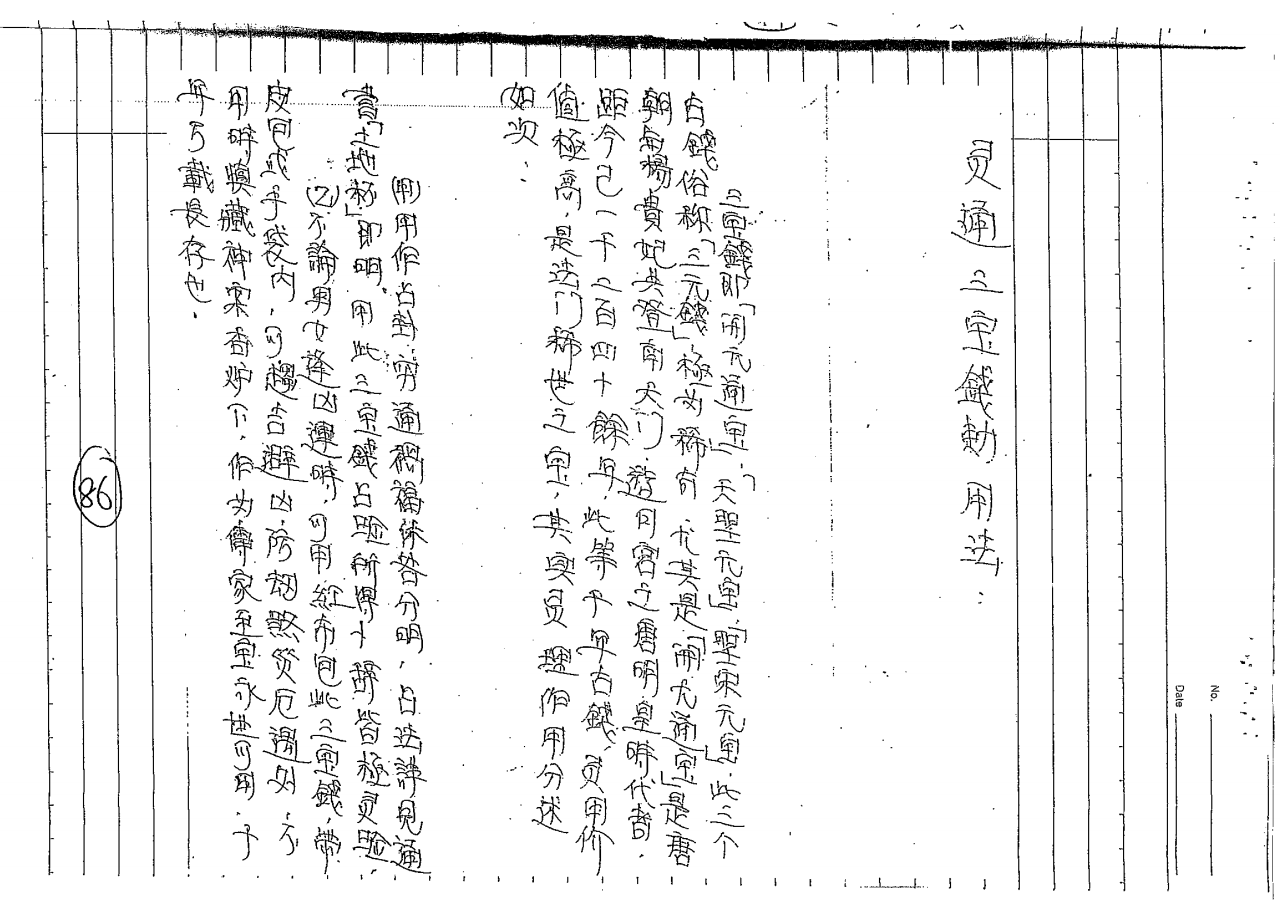 灵通三宝錢勅用法：
三宝錢即「開元通宝」、「天聖元宝」、「聖宋元宝」、此三个
古錢俗称「三元錢」、極为稀有、尤其是「開元通宝」是唐
朝与楊貴妃共登南天门、遊月宮之唐明皇時代者、
距今已一千二百四十餘年、此等千年古錢、灵用价
值極高、是法门稀世之宝、其真灵理作用分述
如次：
用作占卦、穷通祸福休咎分明、占法詳見通
書「土地杯」即明、用此三宝錢占验所得卜辞皆極灵验、
(2)不論男女逢凶運時、可用红布包此三宝錢、带
皮包或手袋内、可趨吉避凶防劫煞災厄邊外、不
用時填藏神案香炉下、作为傳家至宝永世可用、千
年万載長存也、
86
No.
Date